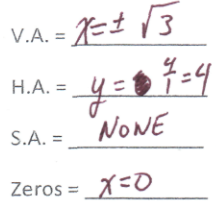 V.A. = x=± √3
H.A. = y = 4/1 = 4
S.A. = NONE
Zeros = x=0